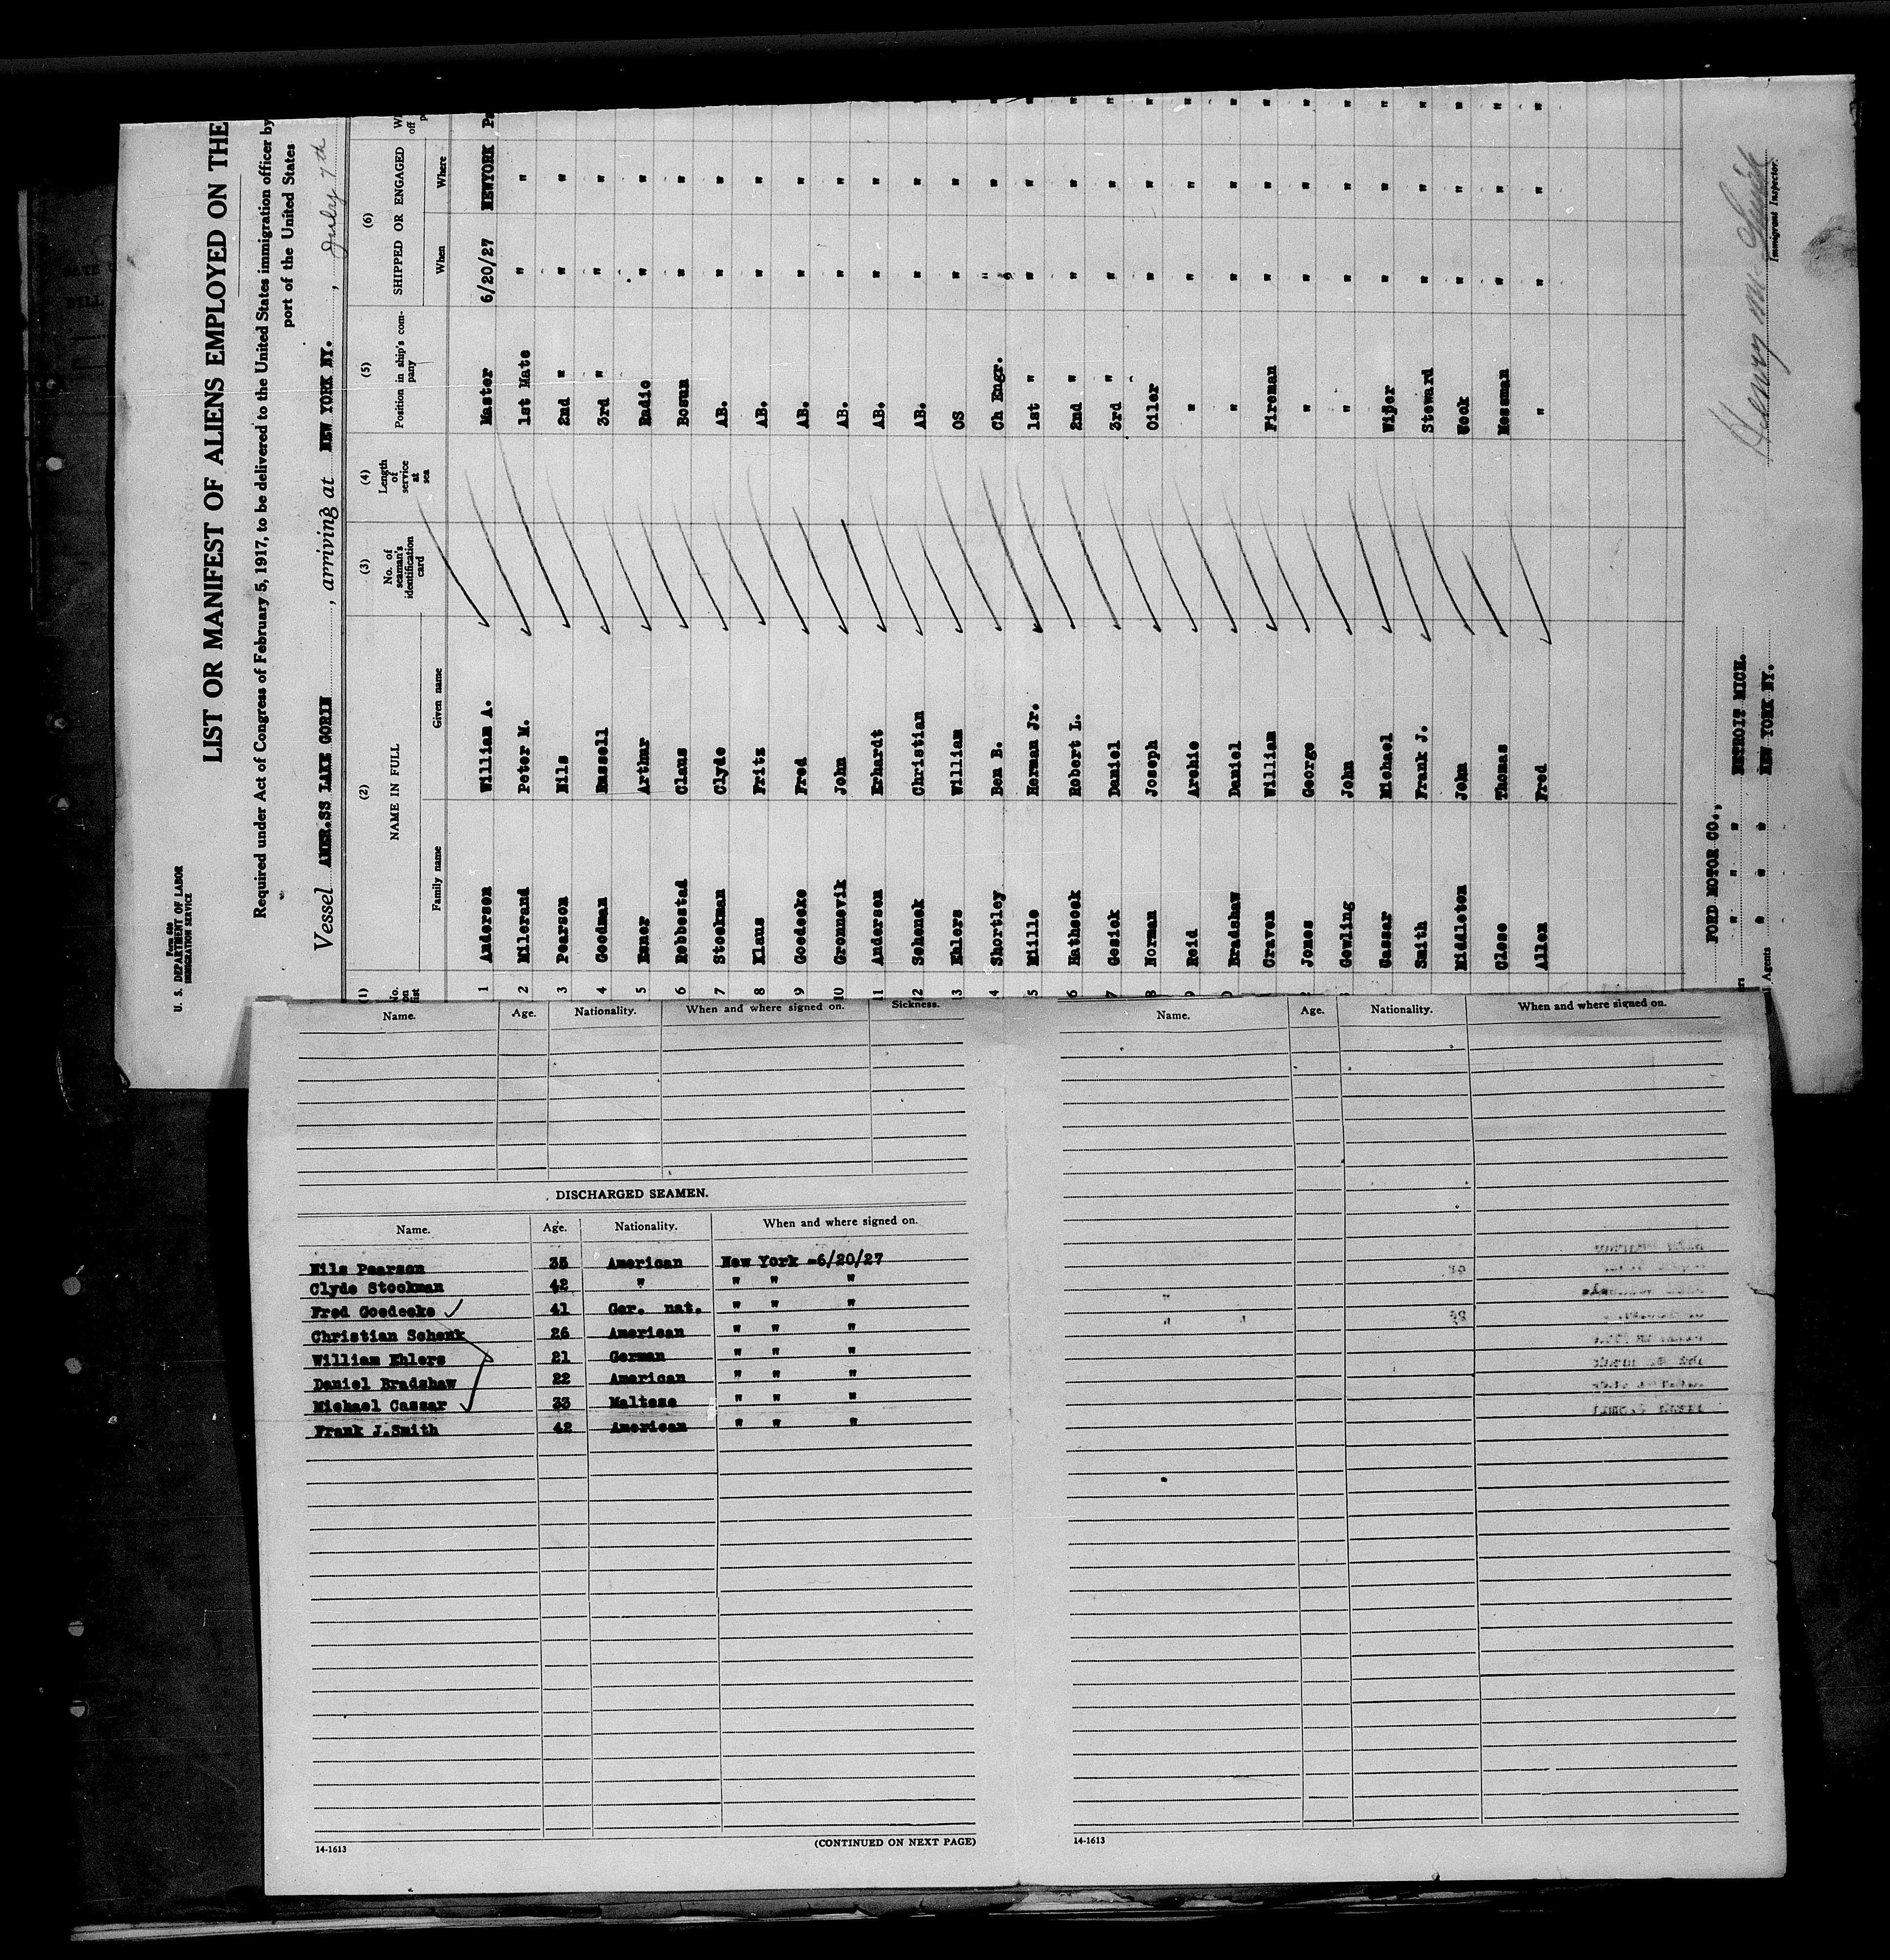 Form 680
U. S. DEPARTMENT OF LABOR
IMMIGRATION SERVICE
LIST OR MANIFEST OF ALIENS EMPLOYED ON THE
Required under Act of Congress of February 5, 1917, to be delivered to the United States immigration officer by
port of the United States
Vessel AMER.SS LAKE GORIN, arriving at NEW YORK NY., July 7th
(1) (2) (3) (4) (5) (6)
No. on list NAME IN FULL No. of seaman's identification card Length of service at sea Position in ship's company SHIPPED OR ENGAGED
Family name Given name When Where
1 Anderson William A. Master 6/20/27 NEWYORK
2 Milerand Peter M. 1st Mate " "
3 Pearson Nils 2nd " " "
4 Goodman Russell 3rd " " "
5 Exner Arthur Radio " "
6 Robbestad Claus Bosun " "
7 Stockman Clyde AB. " "
8 Klaus Fritz AB. " "
9 Goedecke Fred AB. " "
10 Gronnevik John AB. " "
11 Andersen Erhardt AB. " "
12 Schenck Christian AB. " "
3 Ehlers William OS " "
4 Shortley Ben B. Ch Engr. " "
5 Mille Herman Jr. 1st " " "
6 Hathcock Robert L. 2nd " " "
7 Gesick Daniel 3rd " " "
8 Norman Joseph Oiler " "
9 Reid Archie " " "
0 Bradshaw Daniel " " "
Craven William Fireman " "
Jones George " " "
Gowling John " " "
Cassar Michael Wiper " "
Smith Frank J. Steward " "
Middleton John Cook " "
Close Thomas Messman " "
Allen Fred " " "
FORD MOTOR CO.,
" " " DETROIT MICH.
Agents " " " NEW YORK NY.
Immigrant Inspector.
Name. Age. Nationality. When and where signed on. Sickness.
DISCHARGED SEAMEN.
Name. Age. Nationality. When and where signed on.
Nils Pearson 35 American New York -6/20/27
Clyde Stockman 42 " " " "
Fred Goedecke 41 Ger. nat. " " "
Christian Schenk 26 American " " "
William Ehlers 21 German " " "
Daniel Bradshaw 22 American " " "
Michael Cassar 33 Maltese " " "
Frank J.Smith 42 American " " "
14-1613 (CONTINUED ON NEXT PAGE)
Name. Age. Nationality. When and where signed on.
14-1613